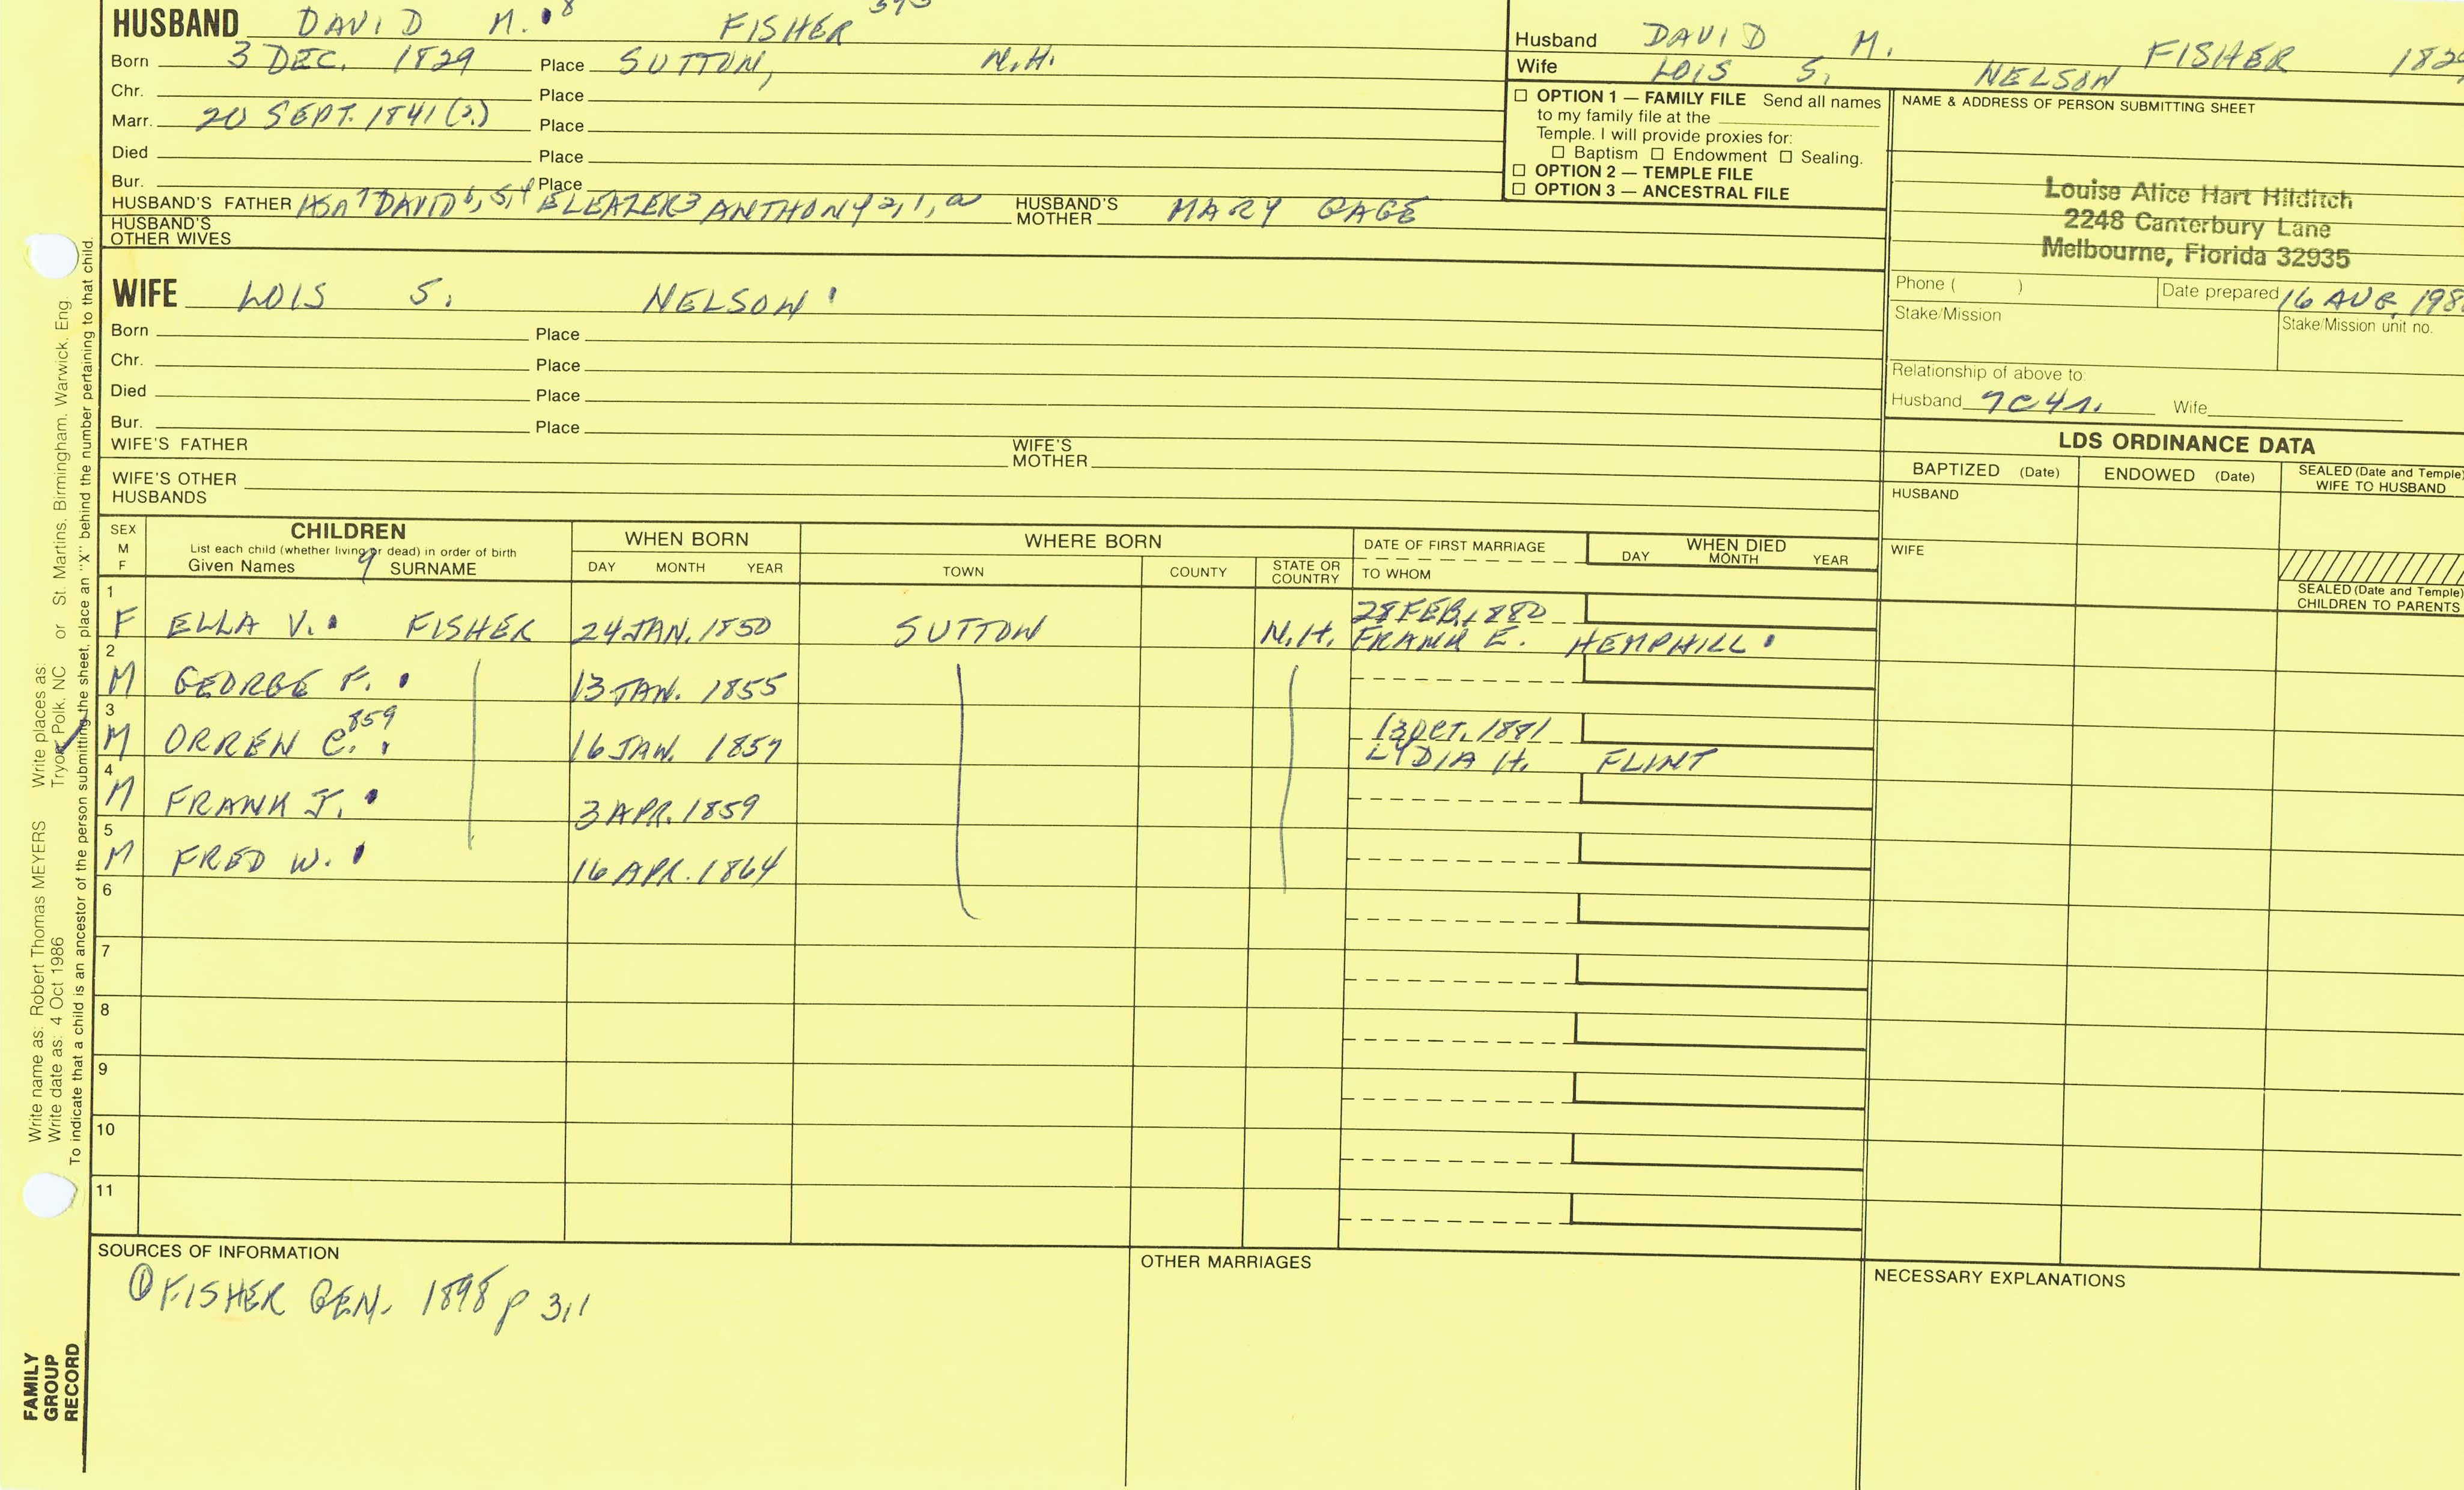 HUSBAND DAVID M. 8 FISHER
Born 3 DEC. 1829 Place SUTTON, N.H.
Chr. Place
Marr. 20 SEPT. 1841 (?) Place
Died Place
Bur. Place
HUSBAND'S FATHER ASA 7 DAVID 6, 5, 4 ELEAZER 3 ANTHONY 2, 1, a HUSBAND'S MOTHER MARY GAGE
HUSBAND'S OTHER WIVES
WIFE LOIS S. NELSON
Born Place
Chr. Place
Died Place
Bur. Place
WIFE'S FATHER WIFE'S MOTHER
WIFE'S OTHER HUSBANDS
Husband DAVID M. FISHER
Wife LOIS S. NELSON
☐ OPTION 1 — FAMILY FILE Send all names
to my family file at the
Temple. I will provide proxies for:
☐ Baptism ☐ Endowment ☐ Sealing.
☐ OPTION 2 — TEMPLE FILE
☐ OPTION 3 — ANCESTRAL FILE
NAME & ADDRESS OF PERSON SUBMITTING SHEET
Louise Alice Hart Hilditch
2248 Canterbury Lane
Melbourne, Florida 32935
Phone ( ) Date prepared 16 AUG. 198
Stake/Mission Stake/Mission unit no.
Relationship of above to:
Husband 7C4R. Wife
LDS ORDINANCE DATA
BAPTIZED (Date) ENDOWED (Date) SEALED (Date and Temple) WIFE TO HUSBAND
HUSBAND
WIFE
SEALED (Date and Temple) CHILDREN TO PARENTS
SEX M F
CHILDREN
List each child (whether living or dead) in order of birth
Given Names 9 SURNAME
WHEN BORN
DAY MONTH YEAR
WHERE BORN
TOWN COUNTY STATE OR COUNTRY
DATE OF FIRST MARRIAGE
TO WHOM
WHEN DIED
DAY MONTH YEAR
1 F ELLA V. FISHER 24 JAN. 1850 SUTTON N.H. 28 FEB. 1880
FRANK E. HEMPHILL
2 M GEORGE F. 13 JAN. 1855
3 M ORREN C. 859 16 JAN. 1857 13 OCT. 1881
LYDIA H. FLINT
4 M FRANK J. 3 APR. 1859
5 M FRED W. 16 APR. 1864
6
7
8
9
10
11
SOURCES OF INFORMATION
① FISHER GEN. 1898 p 311
OTHER MARRIAGES
NECESSARY EXPLANATIONS
Write name as: Robert Thomas MEYERS Write places as:
Write date as: 4 Oct 1986 Tryon, Polk, NC or St. Martins, Birmingham, Warwick, Eng
To indicate that a child is an ancestor of the person submitting the sheet, place an "X" behind the number pertaining to that child.
FAMILY
GROUP
RECORD